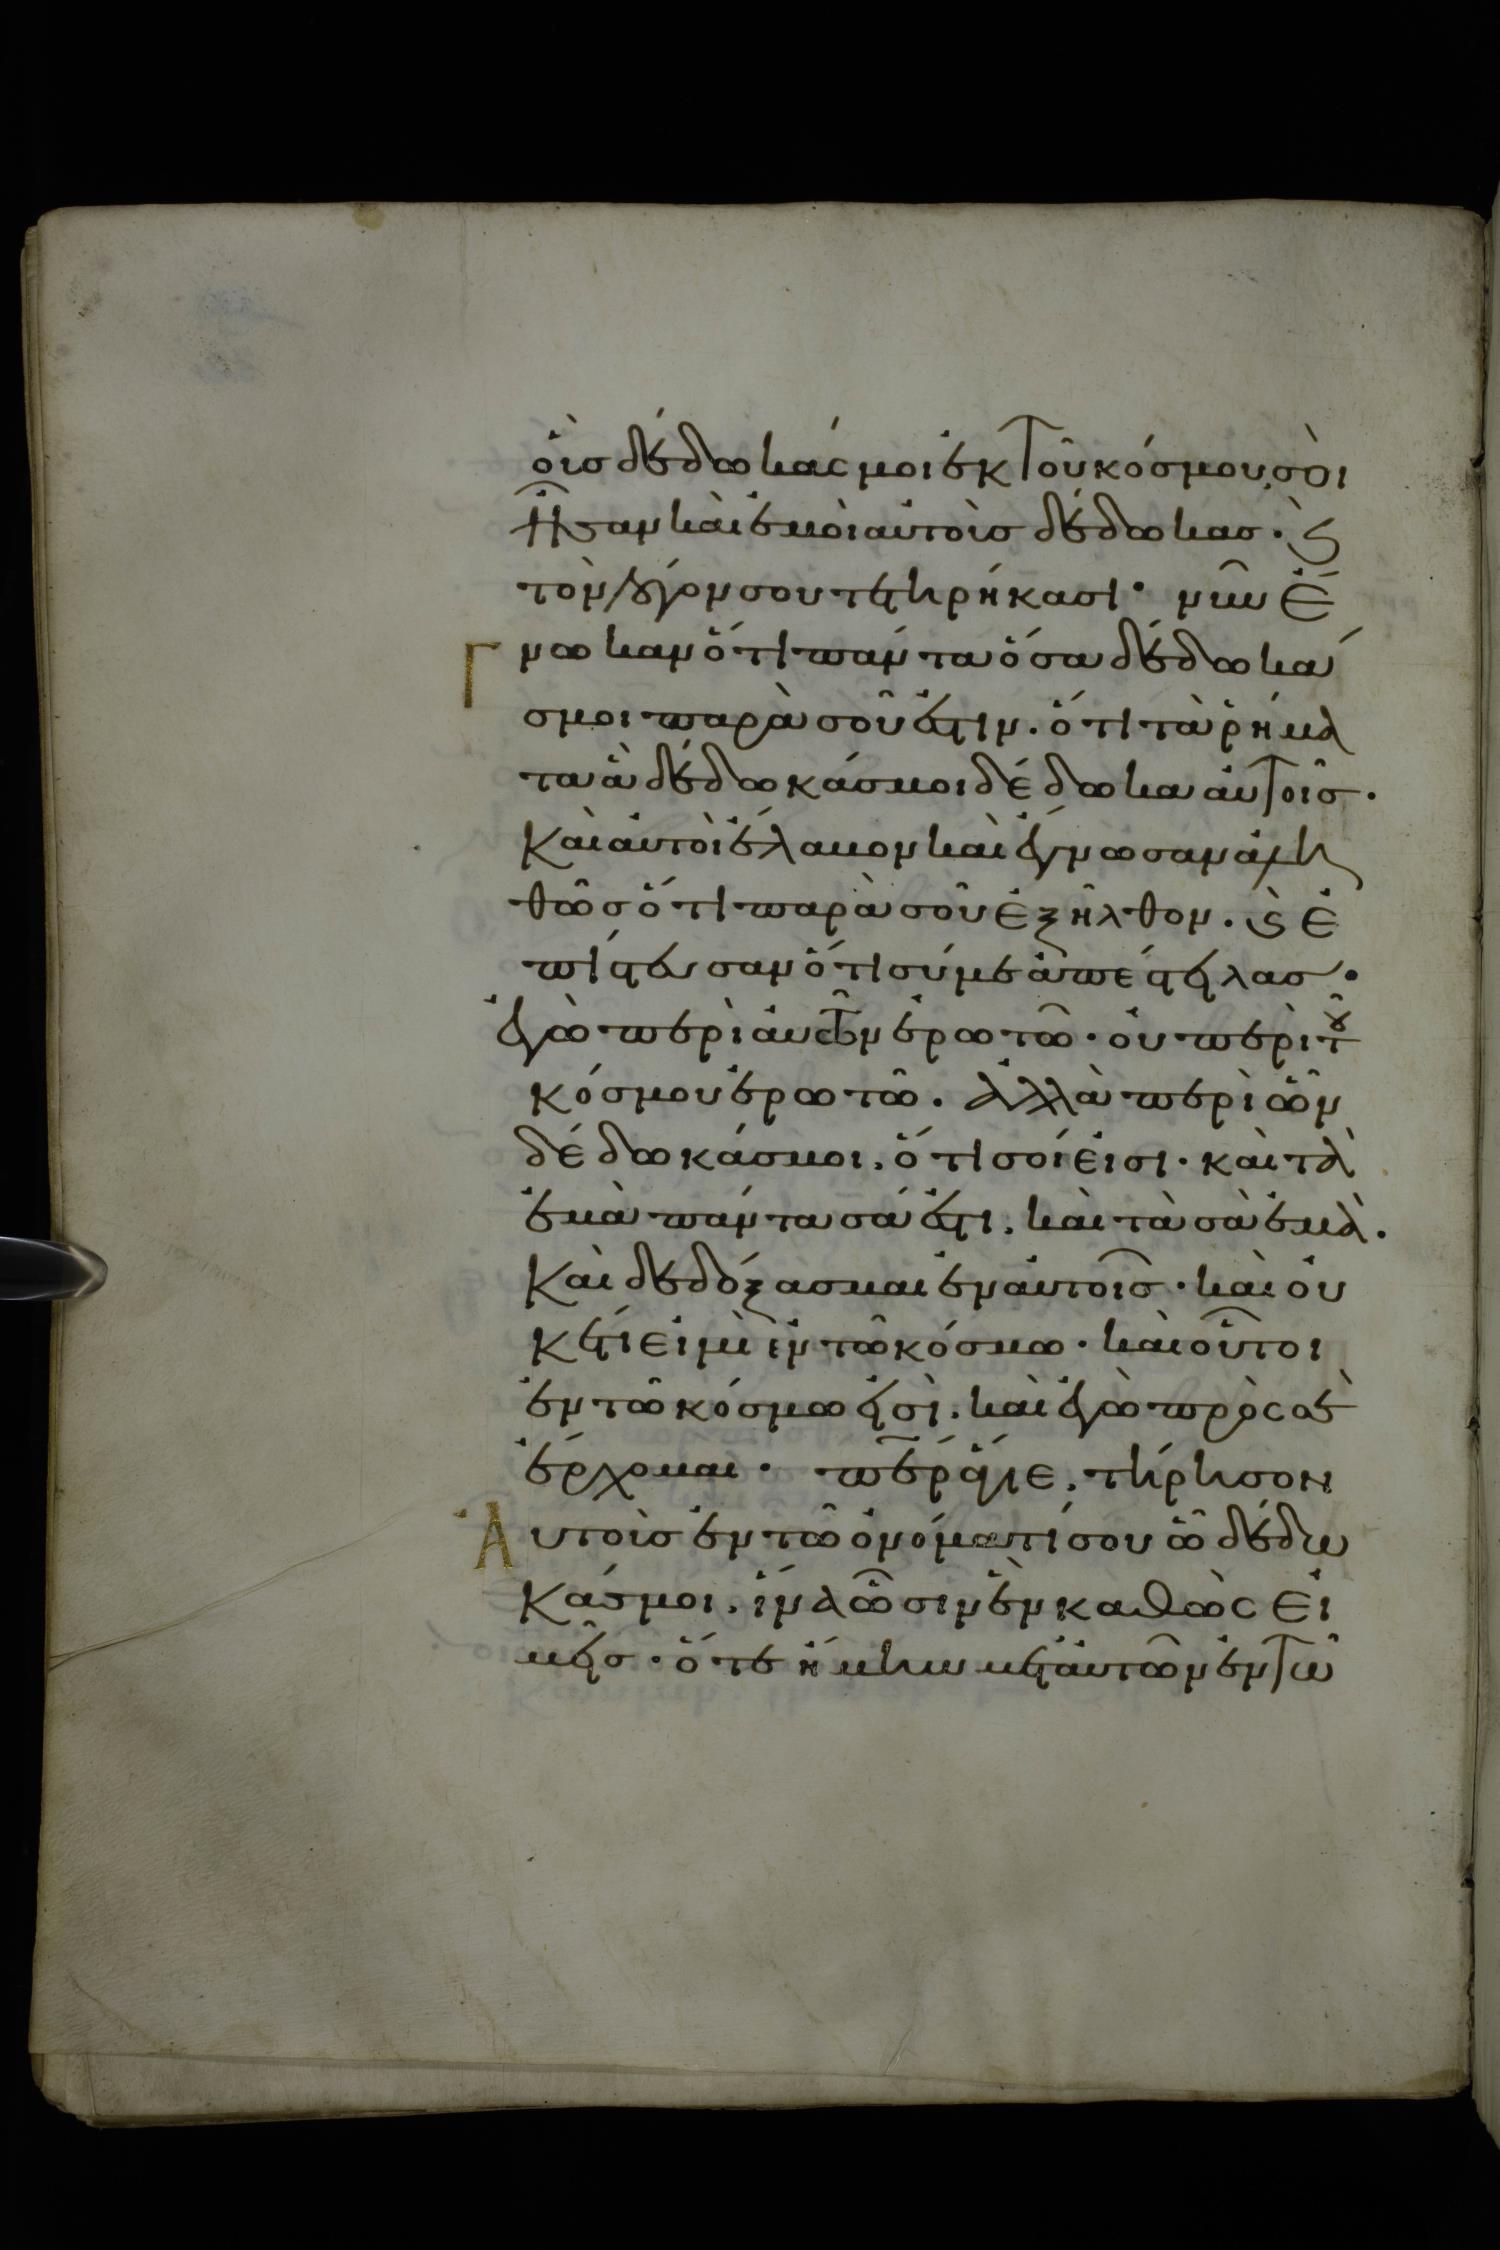 οἷσ δέδωκάς μοι ἐκ τοῦ κόσμου, σοὶ
ἦσαν καὶ ἐμοὶ αὐτοὶσ δέδωκασ· ϗ
τὸν λόγον σου τετηρήκασι· νῦν ἔ
Γνωκαν ὅτι πάντα ὅσα δέδωκά
σ μοι παρὰ σοῦ ἐστιν. ὅτι τὰ ῥήμα
τα ἃ δέδωκάσ μοι δέδωκα αὐτοῖσ.
Καὶ αὐτοὶ ἔλαβον καὶ ἔγνωσαν ἀλη
θῶσ ὅτι παρὰ σοῦ ἐξῆλθον. ϗ ἐ
πίστευσαν ὅτι σύ με ἀπέστειλασ·
ἐγὼ περὶ αὐτῶν ἐρωτῶ· οὐ περὶ τοῦ
κόσμου ἐρωτῶ. ἀλλὰ περὶ ὧν
δέδωκάσ μοι, ὅτι σοί εἰσι· καὶ τὰ
ἐμὰ πάντα σά ἐστι, καὶ τὰ σὰ ἐμὰ.
Καὶ δεδόξασμαι ἐν αὐτοῖσ· καὶ οὐ
κέτι εἰμὶ ἐν τῶ κόσμω· καὶ οὗτοι
ἐν τῶ κόσμω εἰσὶ, καὶ ἐγὼ πρὸς σὲ
ἔρχομαι· περ ἅγιε, τήρησον
Αὐτοὺσ ἐν τῶ ὀνόματί σου ὧ δέδω
κάσ μοι, ἵνα ὦσιν ἓν καθὼς ἡ
μεῖσ· ὅτε ἤμην μετ αὐτῶν ἐν τῶ